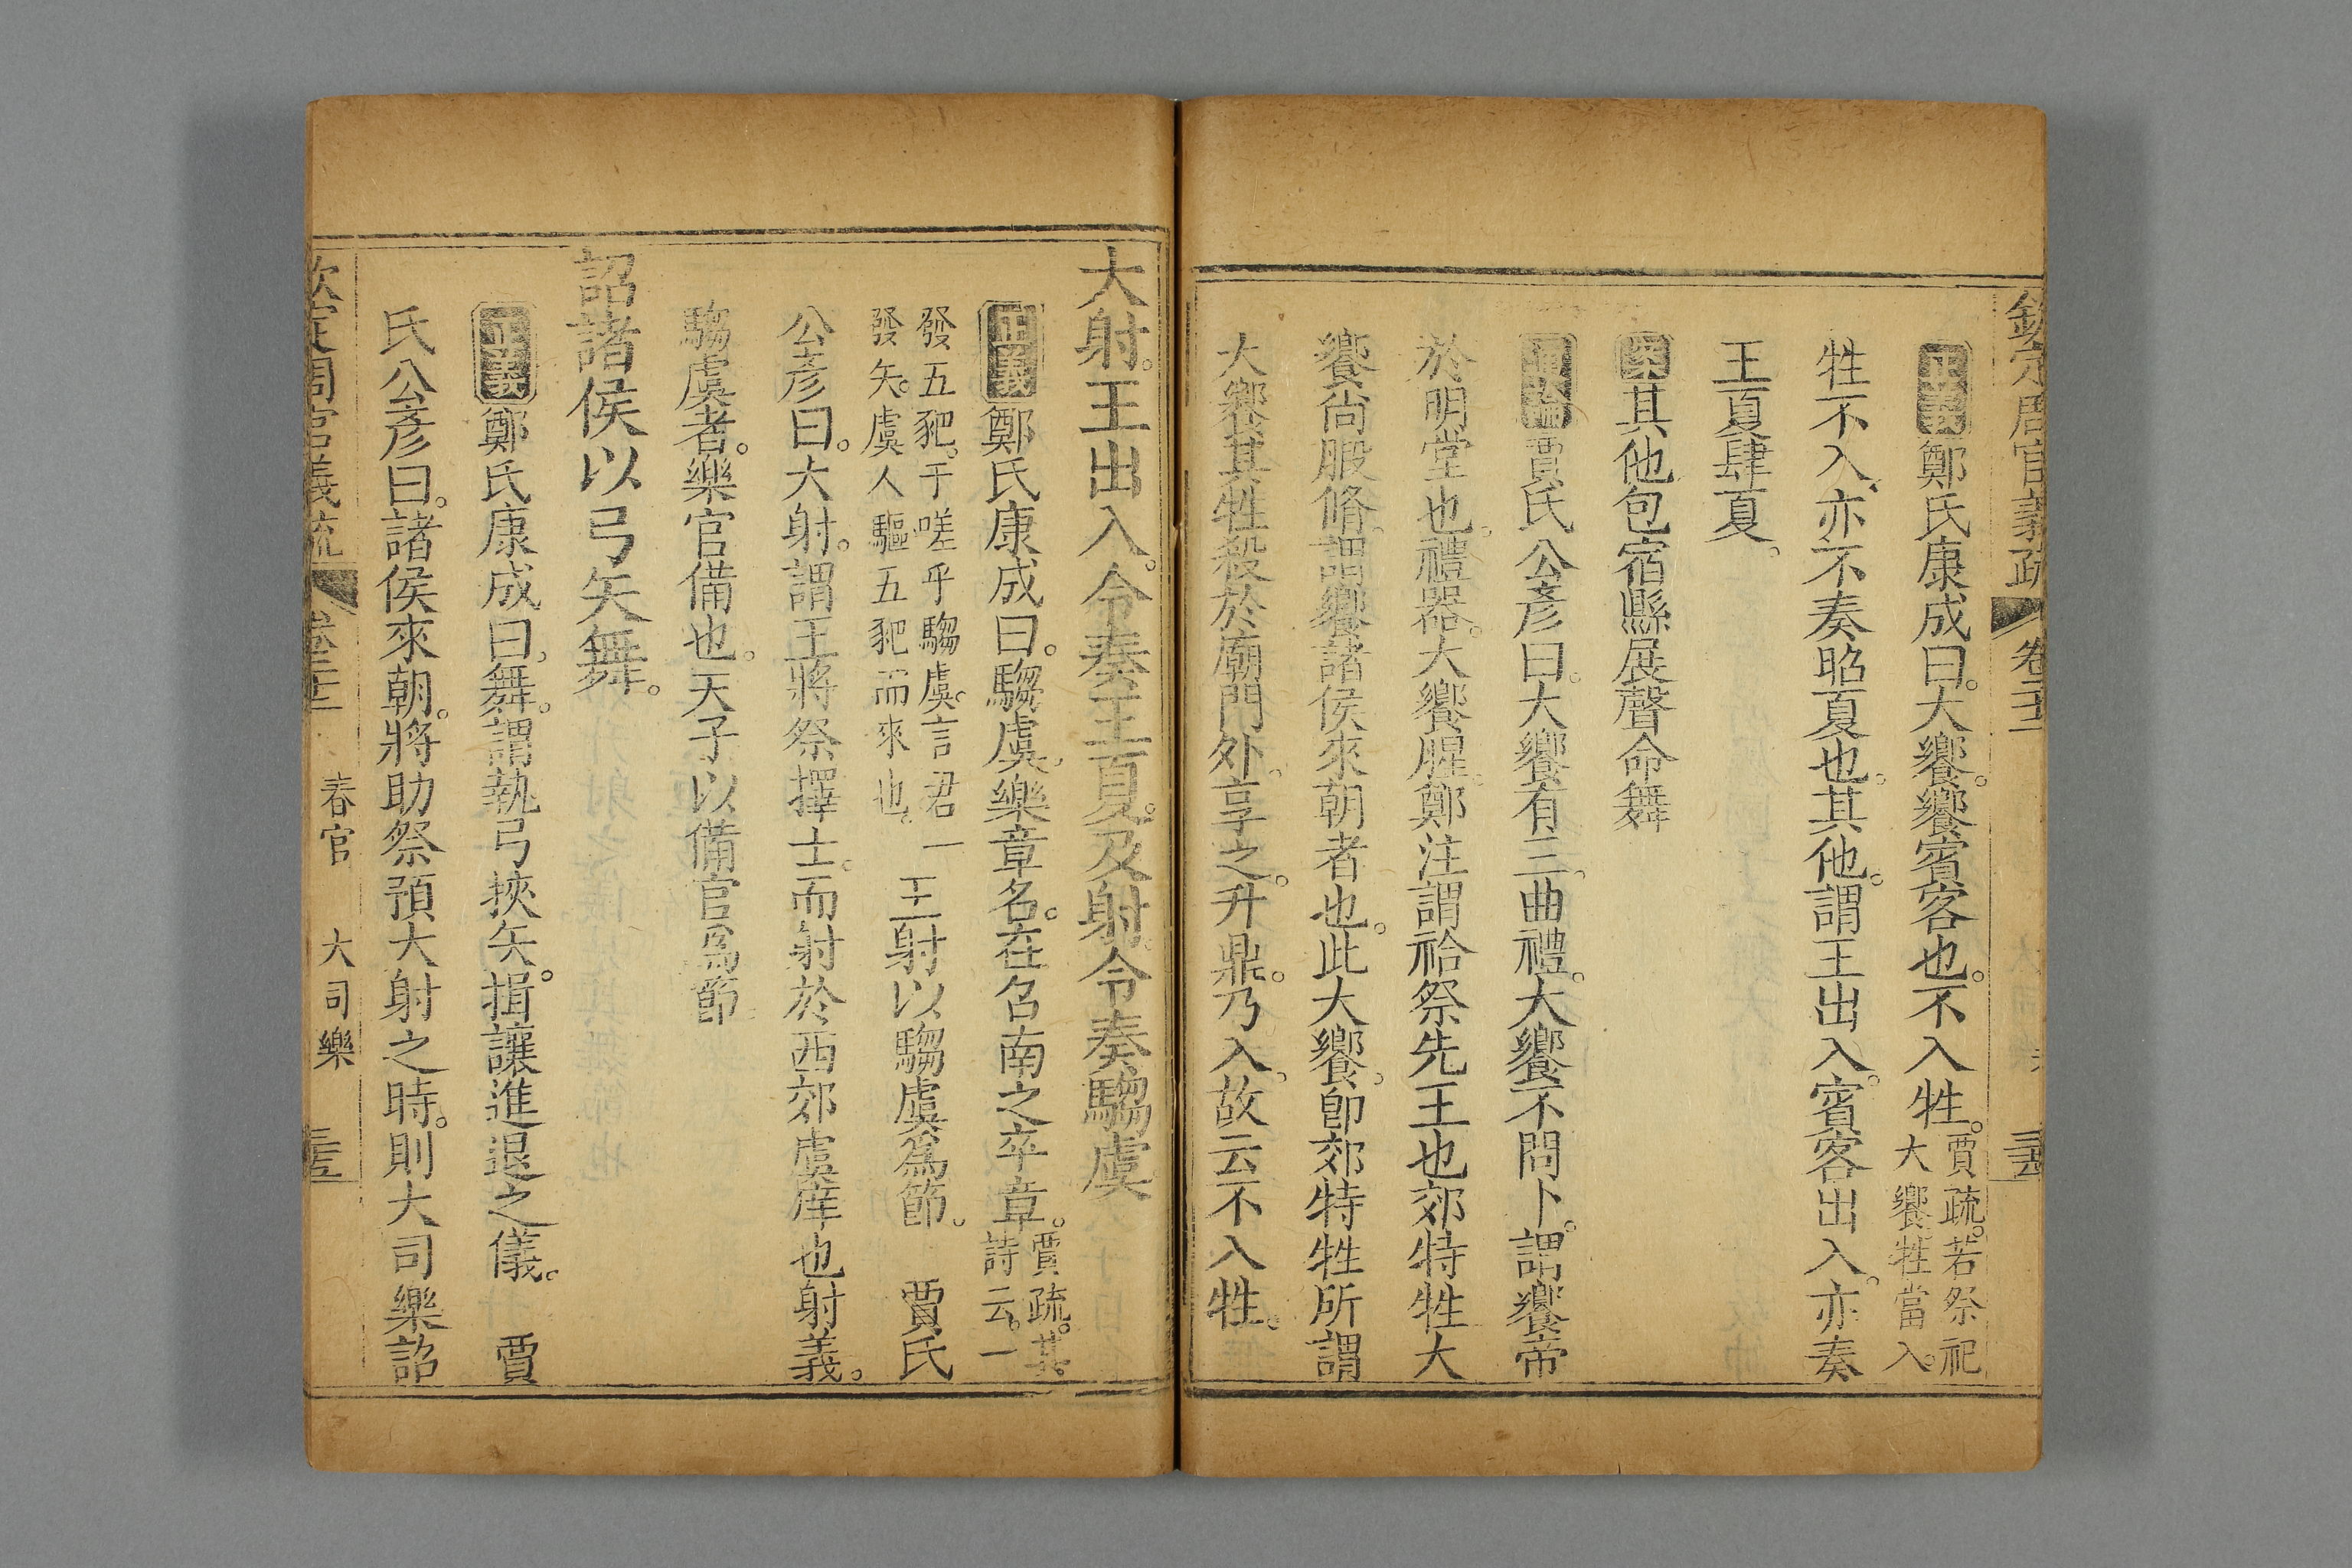 欽定周官義疏 卷二十二
正義鄭氏康成曰。大饗。饗賓客也。不入牲。賈疏。若祭祀大饗。牲當入。
牲不入。亦不奏昭夏也。其他。謂王出入。賓客出入。亦奏
王夏肆夏。
案其他包宿縣展聲命舞
通論賈氏公彥曰。大饗有三。曲禮。大饗不問卜。謂饗帝
於明堂也。禮器。大饗腥。鄭注謂祫祭先王也。郊特牲大
饗尚腶脩。謂饗諸侯來朝者也。此大饗。卽郊特牲所謂
大饗其牲殺於廟門外。享之。升鼎。乃入。故云不入牲。
大射。王出入。令奏王夏。及射。令奏騶虞
正義鄭氏康成曰。騶虞。樂章名。在召南之卒章。賈疏。其詩云。一
發五豝。于嗟乎騶虞。言君一
發矢。虞人驅五豝而來也。
王射以騶虞爲節。 賈氏
公彥曰。大射。謂王將祭擇士。而射於西郊虞庠也射義。
騶虞者。樂官備也。天子以備官爲節
詔諸侯以弓矢舞。
正義鄭氏康成曰。舞。謂執弓挾矢。揖讓進退之儀。 賈
氏公彥曰。諸侯來朝。將助祭預大射之時。則大司樂詔
欽定周官義疏 卷二十二 春官 大司樂 三十五